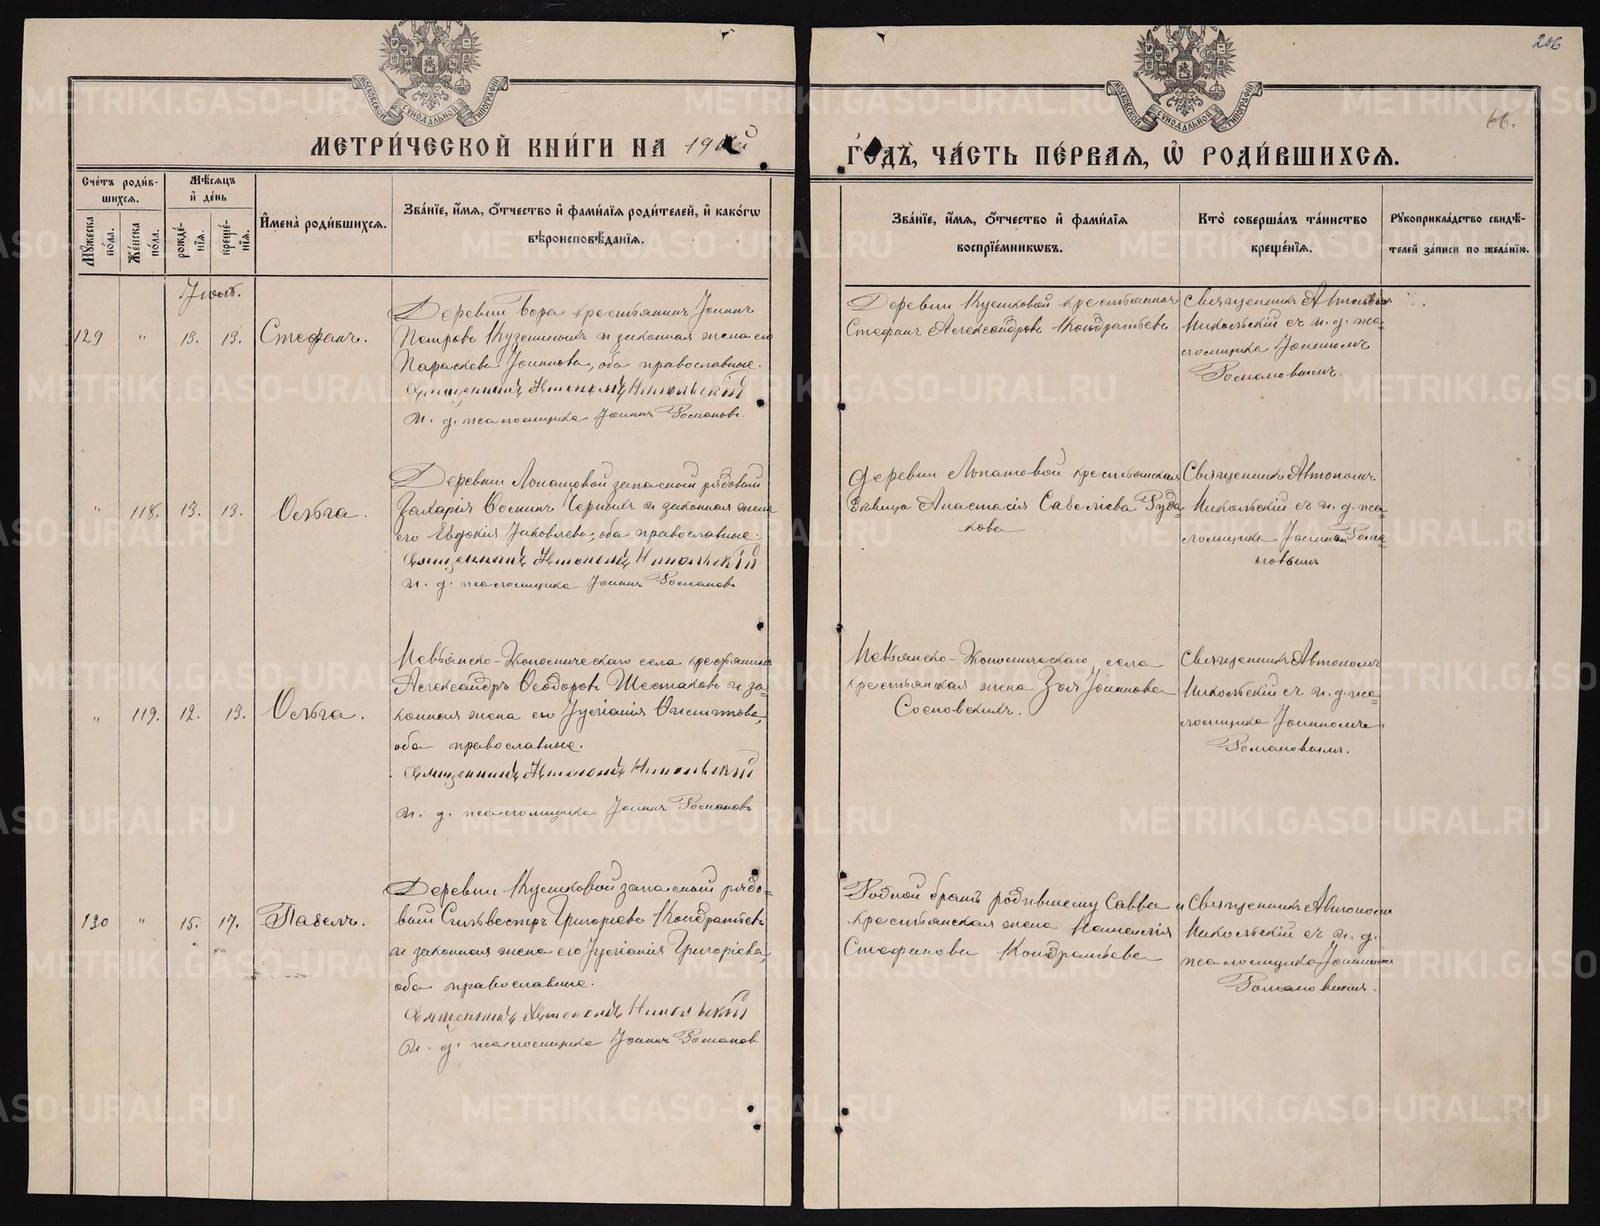 206
66.
МОСКОВСКОЙ СѴНОДАЛЬНОЙ ТИПОГРАФІИ
МОСКОВСКОЙ СѴНОДАЛЬНОЙ ТИПОГРАФІИ
МЕТРИ́ЧЕСКОЙ КНИ́ГИ НА 19
ГО́ДЪ, ЧА́СТЬ ПЕ́РВАѦ, Ѡ҆ РОДИ́ВШИХСѦ.
Сче́тъ роди́в-
шихсѧ.
Мꙋ́жеска по́ла.
Же́нска по́ла.
Мѣ́сѧцъ
и҆ де́нь
рожде́-
нїѧ.
креще́-
нїѧ.
И҆мена̀ роди́вшихсѧ.
Зва́нїе, и҆́мѧ, ѻ҆́тчество и҆ фами́лїѧ роди́телей, и҆ како́гѡ
вѣроисповѣ́данїѧ.
Зва́нїе, и҆́мѧ, ѻ҆́тчество и҆ фами́лїѧ
воспрїе́мникѡвъ.
Кто̀ соверша́лъ та́инство
креще́нїѧ.
Рꙋкоприкла́дство свидѣ́-
телей за́писи по жела́нїю.
129 " 13. 13. Стефанъ.
Деревни Бора крестьянинъ Іоаннъ
Петровъ Кузеванныхъ и законная жена его
Параскева Іоаннова, оба православные.
Священникъ Автономъ Никольскій
и. д. псаломщика Іоаннъ Романовъ.
Стефанъ Александровъ Кондратьевъ
Священникъ Автономъ
Никольскій съ и. д. пса-
ломщика Іоанномъ
Романовымъ.
" 118. 13. 13. Ольга.
Деревни Лопатовой запасный рядовый
Захарія Черныхъ и законная жена
его Евдокія Іаковлева, оба православные.
Священникъ Автономъ Никольскій
и. д. псаломщика Іоаннъ Романовъ
Деревни Лопатовой крестьянская
дѣвица Анастасія Савеліева Руда-
кова
Священникъ Автономъ
Никольскій съ и. д. пса-
ломщика Іоанномъ Рома-
новымъ
" 119. 12. 13. Ольга.
Невьянско-Экономическаго села крестьянинъ
Александръ Ѳеодоровъ Шестаковъ и за-
конная жена его Іуліанія
оба православные.
Священникъ Автономъ Никольскій
и. д. псаломщика Іоаннъ Романовъ
Невьянско-Экономическаго села
крестьянская жена Зоя Іоаннова
Сосновскихъ.
Священникъ Автономъ
Никольскій съ и. д. пса-
ломщика Іоанномъ
Романовымъ.
130 " 15. 17. Павелъ.
запасный рядо-
вый Сильвестръ Григорьевъ Кондратьевъ
и законная жена его Іуліанія Григоріева,
оба православные.
Священникъ Автономъ Никольскій
и. д. псаломщика Іоаннъ Романовъ
Родной братъ родившему Савва и
крестьянская жена Наталія
Стефанова Кондратьева
Священникъ Автономъ
Никольскій съ и. д.
псаломщика Іоанномъ
Романовымъ.
METRIKI.GASO-URAL.RU